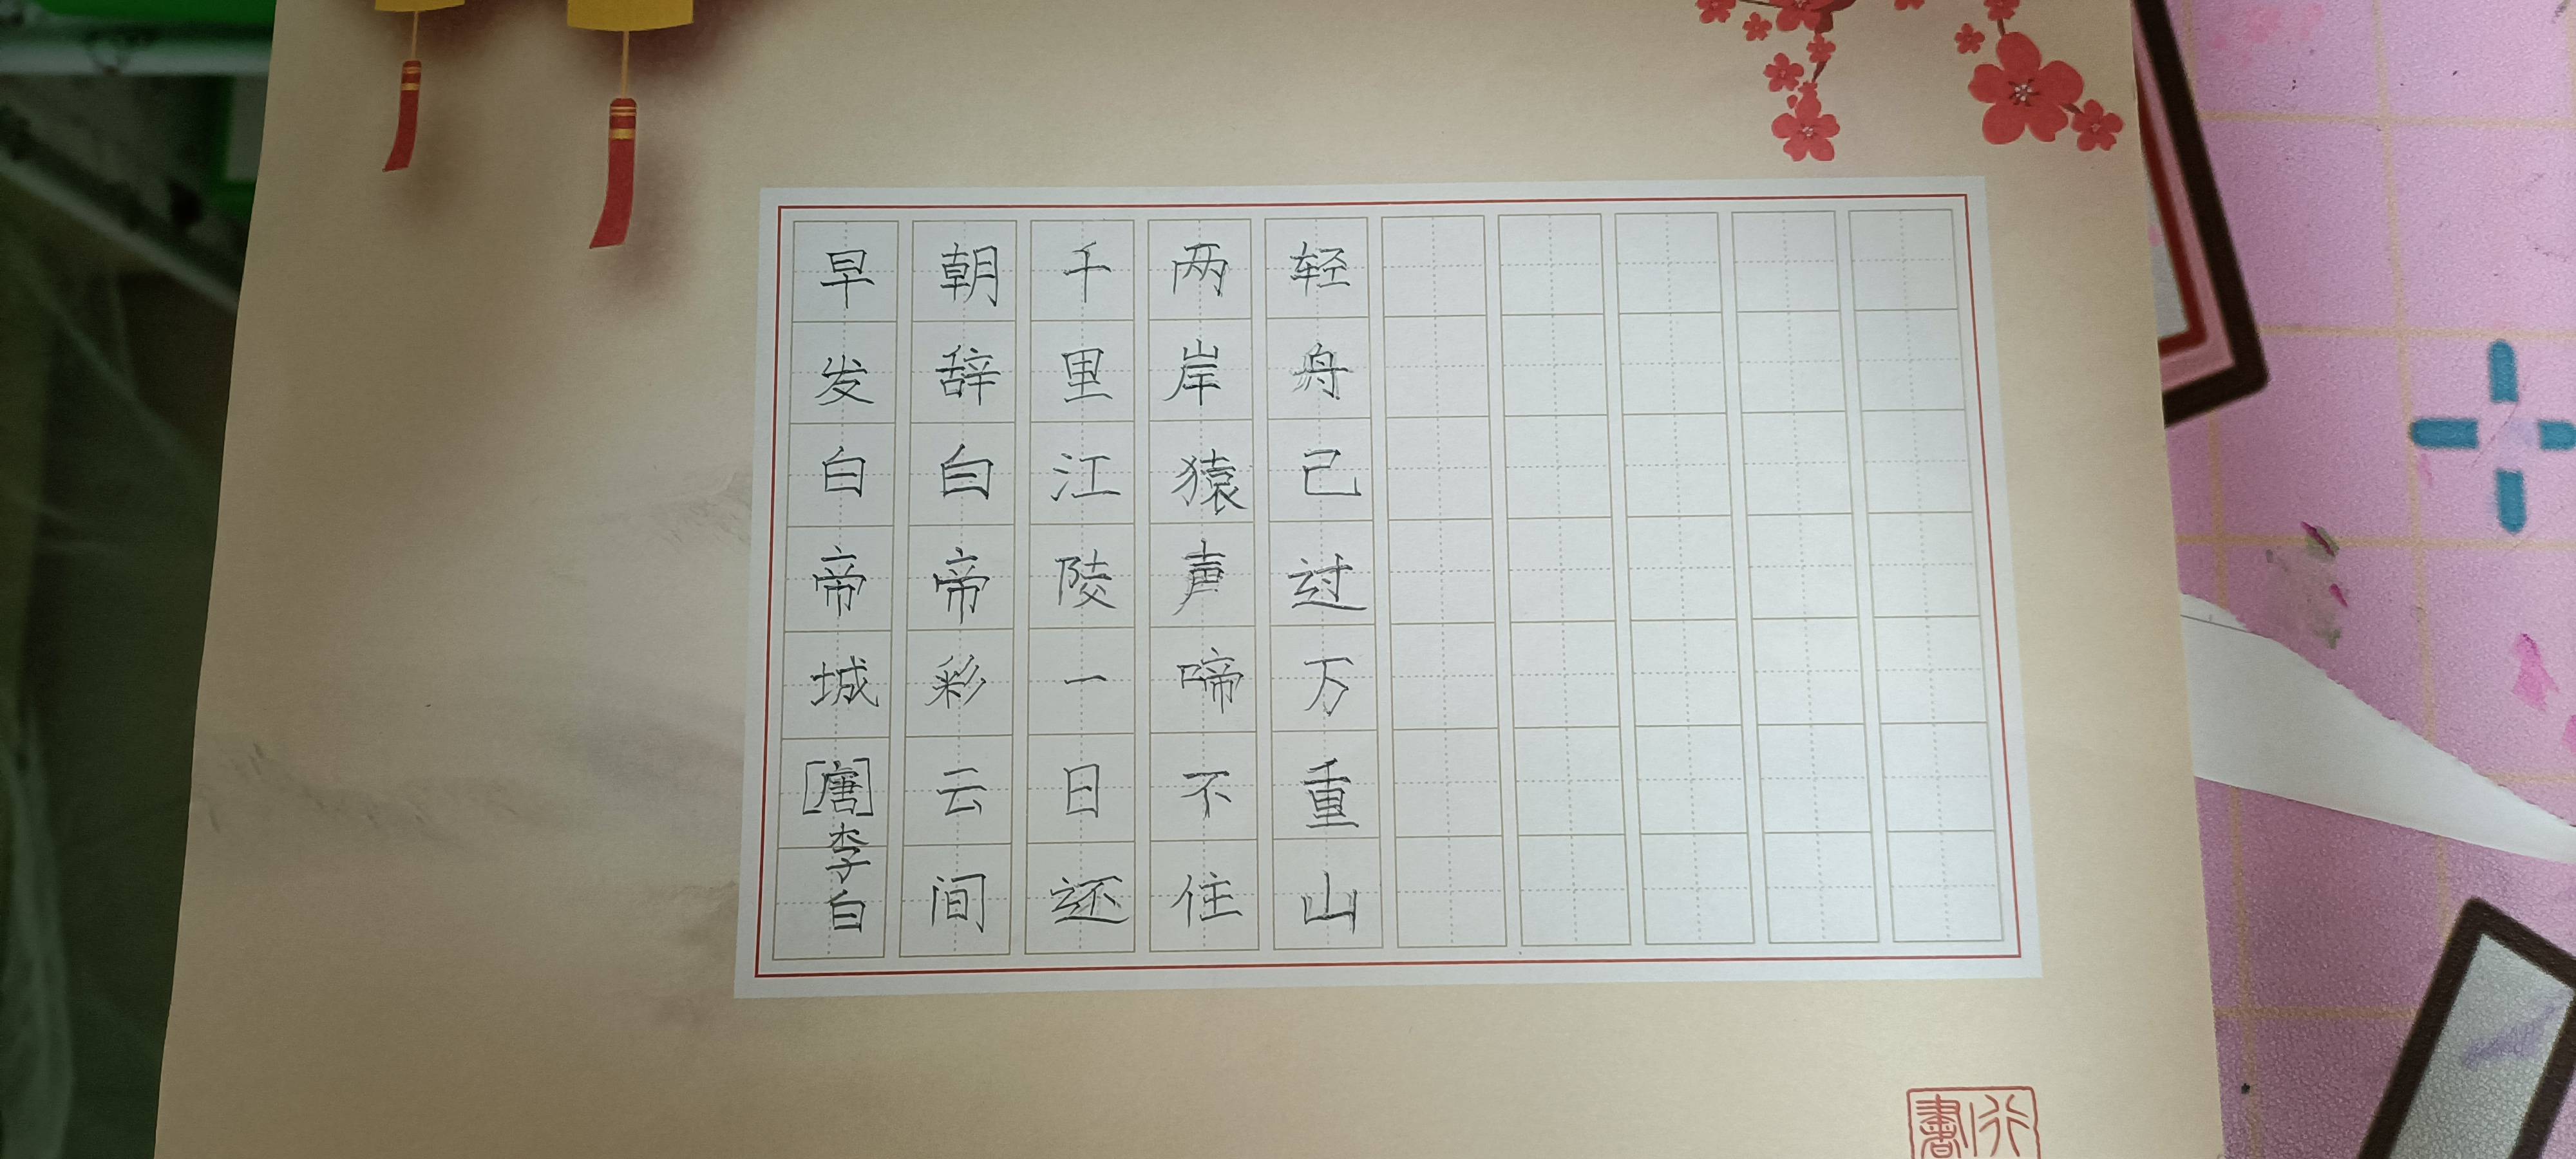 早发白帝城[唐]李白
朝辞白帝彩云间
千里江陵一日还
两岸猿声啼不住
轻舟己过万重山